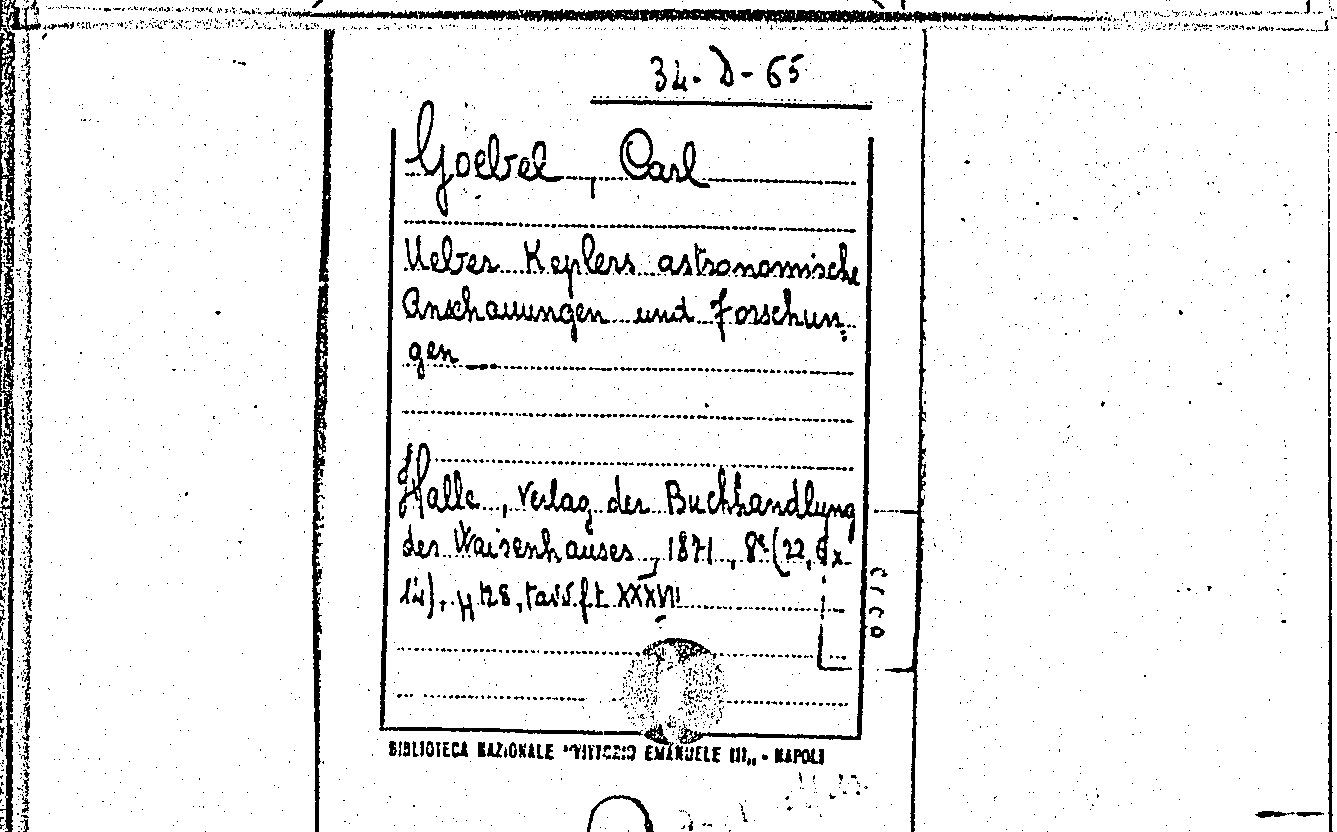 34-D-65
Goebel, Carl
Ueber Keplers astronomische
Anschauungen und Forschun=
gen
Halle, Verlag der Buchhandlung
des Waisenhauses, 1871, 8º (22, x
14), p 128, XXXVII
BIBLIOTECA NAZIONALE "VITTORIO EMANUELE III„ - NAPOLI